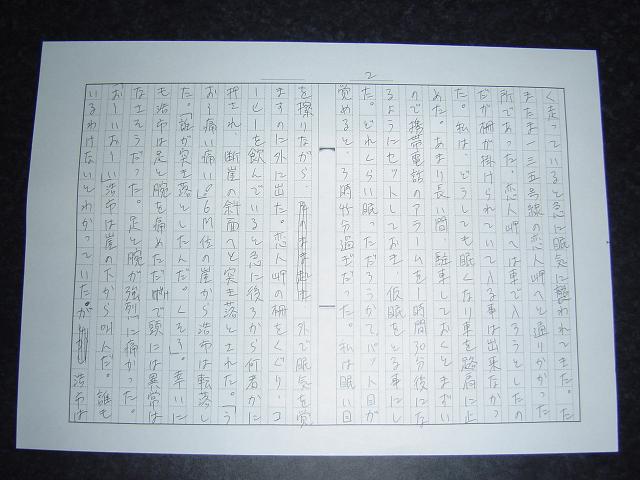 2
く走っていると急に眠気に襲われてきた。た
またま一三五号線の恋人岬へと通りかかった
所であった。恋人岬へは車で入ろうとしたの
だが柵が掛けられていて入る事は出来なかっ
た。私は、どうしても眠くなり車を路肩に止
めた。あまり長い間、駐車しておくとまずい
ので携帯電話のアラームを1時間30分後にな
るようにセットしておき、仮眠をとる事にし
た。どれくらい眠っただろうかてパット目が
覚めると、3時45分過ぎだった。私は眠い目
を擦りながら、外で眠気を覚
ますのに外に出た。恋人岬の柵をくぐり、コ
ーヒーを飲んでいると急に後ろから何者かに
押され、断崖の斜面へと突き落とされた。「う
お〜痛い痛い」6m位の崖から浩市は転落し
た。「誰が突き落としたんだ。くそう」。幸いに
も浩市は足と腕を痛めただけで頭には異常は
なさそうだった。足と腕が強烈に痛かった。
「おーいおーい」浩市は崖の下から叫んだ。誰も
いるわけないとわかっていたが 浩市は